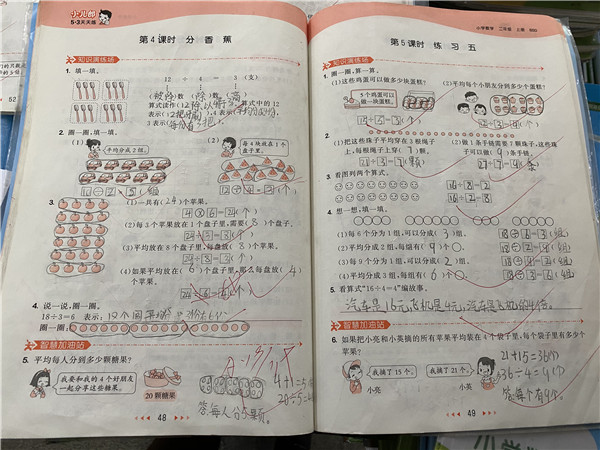 小儿郎
5·3天天练
第4课时 分香蕉
知识演练场
1. 填一填。
12 ÷ 4 = 3 (支)
算式读作(12除以4等于3),算式中的12
表示(
3表示(
2. 圈一圈,填一填。
(1) 平均分成2组。
(2) 每4块放在1个盘子里。
3.
(1)一共有(24)个苹果。
4×6=24(个)
(2)每3个苹果放在1个盘子里,需要(8)个盘子。
24÷3=8(个)
(3)平均放在8个盘子里,每盘放(3)个苹果。
24÷8=3(个)
(4)如果平均放在(6)个盘子里,那么每盘放(4)个苹果。
24÷6=4(个)
4. 说一说,圈一圈。
18÷3=6 表示:
圈一圈:
智慧加油站
5. 平均每人分到多少颗糖果?
我要和我的4个好朋友一起分享这些糖果。
20颗糖果
4+1=5
20÷5=4
48
小学数学 二年级 上册 BSD
第5课时 练习五
知识演练场
1. 圈一圈,算一算。
(1)这些鸡蛋可以做多少块蛋糕?
5个鸡蛋可以做一块蛋糕。
(2)平均每个小朋友分到多少个蛋糕?
12÷3=4(个)
2.
(1)把这些珠子平均穿在3根绳子上,每根绳子上穿( )颗。
(2)做1条手链需要7颗珠子,这些珠子可以做( )条手链。
3. 看图列两个算式。
16÷8=2
16÷2=8
4. 想一想,填一填。
(1)每6个分为1组,可以分成(3)组。
18÷6=3(组)
(2)平均分成2组,每组有(9)个○。
(3)每9个分为1组,可以分成(2)组。
(4)平均分成3组,每组有(6)个○。
5. 看算式“16÷4=4”编故事。
汽车是16元,飞机是4元,汽车是飞机的4倍。
智慧加油站
6. 如果把小亮和小英摘的所有苹果平均装在4个袋子里,每个袋子里有多少个苹果?
我摘了15个。
我摘了21个。
小亮
小英
21+15=36(个)
36÷4=9(个)
答:每个有9个。
49
52